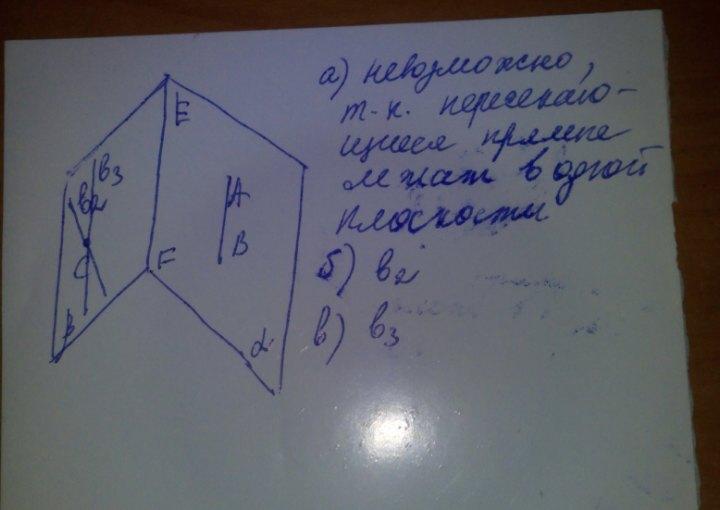 E
в3
в2
A
B
C
F
β
α
а) невозможно,
т-к. пересекаю-
щиеся прямые
лежат в одной
плоскости
б) в2
в) в3